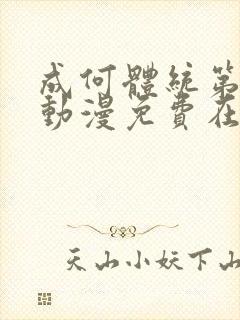 成何體統第
動漫免費在
天山小妖下山